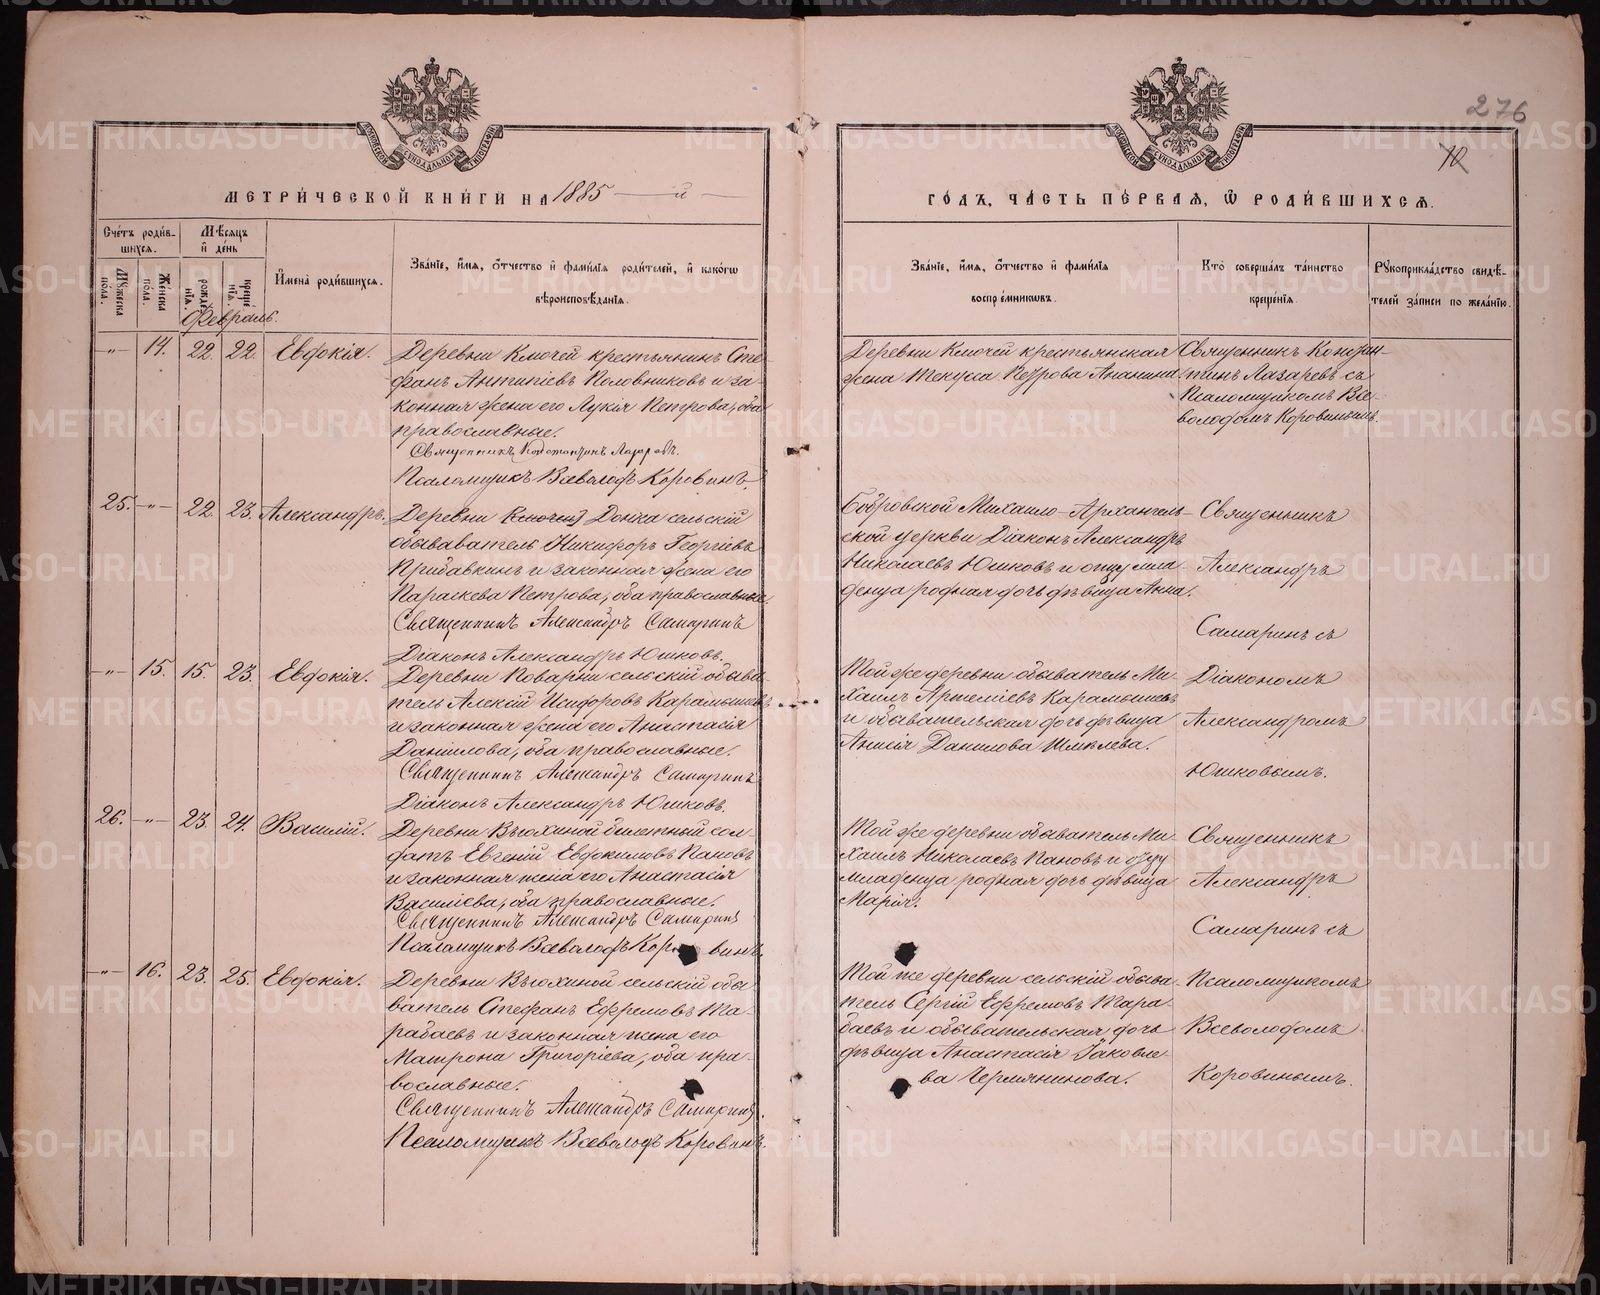 276
10
МЕТРИ́ЧЕСКОЙ КНИ́ГИ НА 1885 й
ГО́ДЪ, ЧА́СТЬ ПЕ́РВАЯ, Ѿ РОДИ́ВШИХСЯ.
Сче́тъ роди́в-
шихся.
Мꙋжеска
пола.
Же́нска
по́ла.
Мѣ́сяцъ
и҆ де́нь
рожде́
нїѧ.
креще́
нїѧ.
И҆мена̀ роди́вшихся.
Зва́нїе, и҆́мѧ, ѻ҆́тчество и҆ фами́лїѧ роди́телей, и҆ како́гѡ
вѣроисповѣ́данїѧ.
Зва́нїе, и҆́мѧ, ѻ҆́тчество и҆ фами́лїѧ
воспрїе́мникѡвъ.
Кто̀ соверша́лъ та́инство
креще́нїѧ.
Рꙋкоприкла́дство свидѣ́-
телей за́писи по жела́нїю.
Февраль.
-"- 14. 22. 22. Евдокія.
Деревни Ключей крестьянинъ Сте-
фанъ Антипіевъ Половниковъ и за-
конная жена его Лукія Петрова, оба
православные.
Священникъ Константинъ Лазаревъ.
Псаломщикъ Всеволодъ Коровинъ.
Деревни Ключей крестьянская
жена Текуса Петрова Ананина
Священникъ Констан-
тинъ Лазаревъ съ
Псаломщикомъ Все-
володомъ Коровинымъ.
25. -"- 22. 23. Александръ.
Деревни Ключей Донка сельскій
обыватель Никифоръ Георгіевъ
Прибавкинъ и законная жена его
Параскева Петрова, оба православные.
Священникъ Александръ Самаринъ
Діаконъ Александръ Юшковъ.
Бобровской Михаило-Архангель-
ской церкви Діаконъ Александръ
Николаевъ Юшковъ и отцу мла-
денца родная дочь дѣвица Анна.
Священникъ
Александръ
Самаринъ съ
-"- 15. 15. 23. Евдокія.
Деревни Поварни сельскій обыва-
тель Алексій Исидоровъ Карамышевъ
и законная жена его Анастасія
Данилова, оба православные.
Священникъ Александръ Самаринъ
Діаконъ Александръ Юшковъ.
Той же деревни обыватель Ми-
хаилъ Артеміевъ Карамышевъ
и обывательская дочь дѣвица
Анисія Данилова Шмелева.
Діакономъ
Александромъ
Юшковымъ.
26. -"- 23. 24. Василій.
Деревни Вьюхиной билетный сол-
датъ Евгеній Евдокимовъ Пановъ
и законная жена его Анастасія
Васильева, оба православные.
Священникъ Александръ Самаринъ
Псаломщикъ Всеволодъ Коровинъ.
Той же деревни обыватель Ми-
хаилъ Николаевъ Пановъ и отцу
младенца родная дочь дѣвица
Марія.
Священникъ
Александръ
Самаринъ съ
-"- 16. 23. 25. Евдокія.
Деревни Вьюхиной сельскій обы-
ватель Стефанъ Ефремовъ Та-
рабаевъ и законная жена его
Матрона Григоріева, оба пра-
вославные.
Священникъ Александръ Самаринъ.
Псаломщикъ Всеволодъ Коровинъ.
Той же деревни сельскій обыва-
тель Сергій Ефремовъ Тара-
баевъ и обывательская дочь
дѣвица Анастасія Іаковле-
ва Чермянинова.
Псаломщикомъ
Всеволодомъ
Коровинымъ.